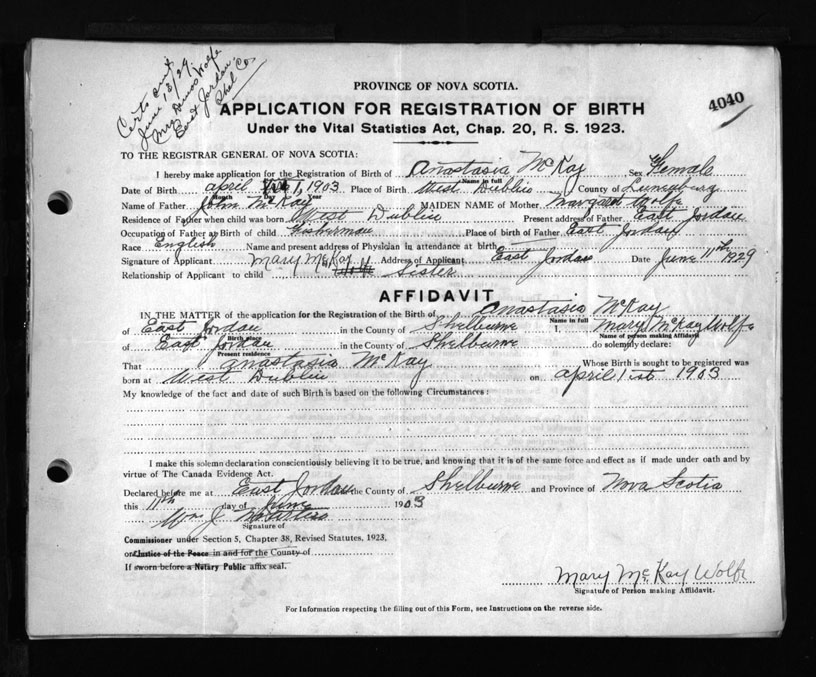 Certs out
June 13/29.
Mrs Amos Wolfe
East Jordan,
Shel Co.
4040
PROVINCE OF NOVA SCOTIA.
APPLICATION FOR REGISTRATION OF BIRTH
Under the Vital Statistics Act, Chap. 20, R. S. 1923.
TO THE REGISTRAR GENERAL OF NOVA SCOTIA:
I hereby make application for the Registration of Birth of Anastasia McKay Sex Female
Name in full
Date of Birth april 1, 1903 Place of Birth West Dublin County of Lunenburg
Month Day Year
Name of Father John McKay MAIDEN NAME of Mother Margaret Wolfe
Residence of Father when child was born West Dublin Present address of Father East Jordan
Occupation of Father at Birth of child Fisherman Place of birth of Father East Jordan
Race English Name and present address of Physician in attendance at birth
Signature of Applicant Mary McKay Wolfe Address of Applicant East Jordan Date June 11th, 1929
Relationship of Applicant to child Sister
AFFIDAVIT
IN THE MATTER of the application for the Registration of the Birth of Anastasia McKay
Name in full
of East Jordan in the County of Shelburne I, Mary McKay Wolfe
Birth place Name of person making Affidavit
of East Jordan in the County of Shelburne do solemnly declare:
Present residence
That Anastasia McKay Whose Birth is sought to be registered was
born at West Dublin on april 1st 1903
My knowledge of the fact and date of such Birth is based on the following Circumstances:
I make this solemn declaration conscientiously believing it to be true, and knowing that it is of the same force and effect as if made under oath and by
virtue of The Canada Evidence Act.
Declared before me at East Jordan the County of Shelburne and Province of Nova Scotia
this 11th day of June 1903
Wm J.
Signature of
Commissioner under Section 5, Chapter 38, Revised Statutes, 1923,
or Justice of the Peace in and for the County of
If sworn before a Notary Public affix seal.
Mary McKay Wolfe
Signature of Person making Affidavit.
For Information respecting the filling out of this Form, see Instructions on the reverse side.